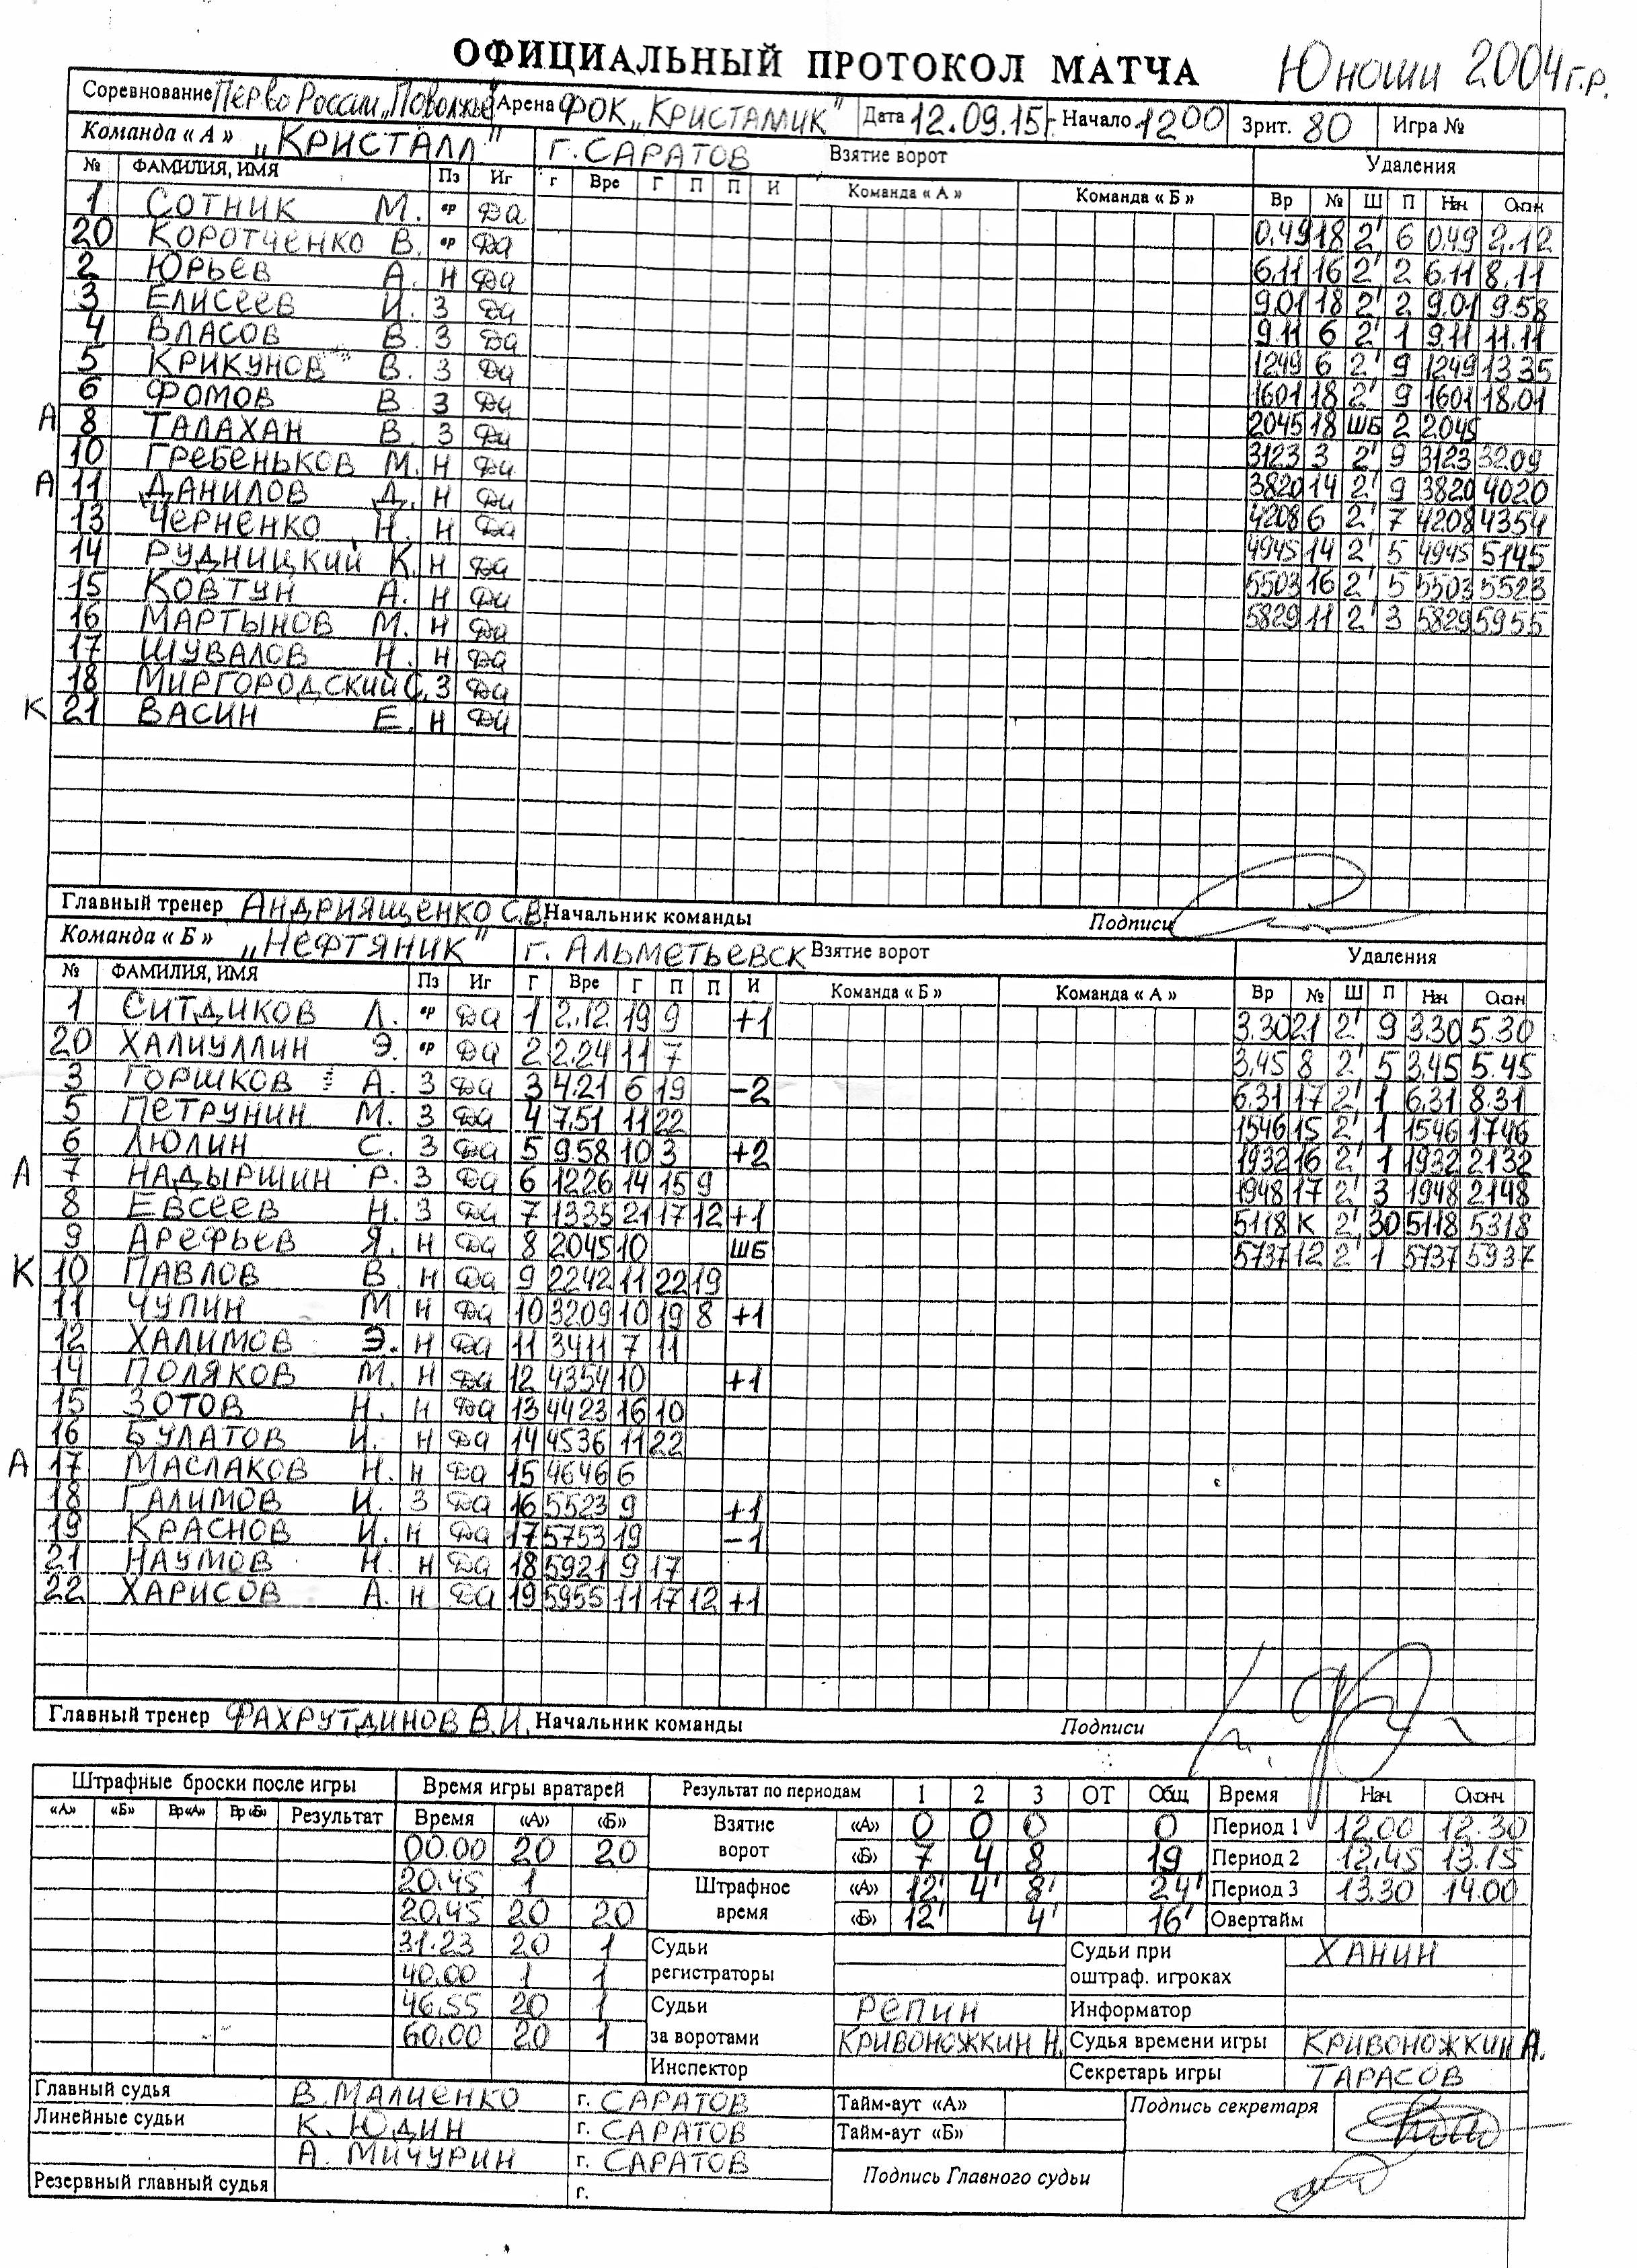 ОФИЦИАЛЬНЫЙ ПРОТОКОЛ МАТЧА Юноши 2004 г.р.
Соревнование Перво России „Поволжье" Арена ФОК „КРИСТАЛЛИК" Дата 12.09.15г. Начало 1200 Зрит. 80 Игра №
Команда « А » „КРИСТАЛЛ" г. САРАТОВ Взятие ворот Удаления
№ ФАМИЛИЯ, ИМЯ Пз Иг г Вре Г П П И Команда « А » Команда « Б » Вр № Ш П Нач Окон
1 СОТНИК М. вр Да 0.49 18 2' 6 0.49 2.12
20 КОРОТЧЕНКО В. вр Да 6.11 16 2' 2 6.11 8.11
2 ЮРЬЕВ А. Н Да 9.01 18 2' 2 9.01 9.58
3 ЕЛИСЕЕВ И. З Да 9.11 6 2' 1 9.11 11.11
4 ВЛАСОВ В. З Да 1249 6 2' 9 1249 1335
5 КРИКУНОВ В. З Да 1601 18 2' 9 1601 18.01
6 ФОМОВ В З Да 2045 18 ШБ 2 2045
А 8 ТАЛАХАН В. З Да 3123 3 2' 9 3123 3209
10 ГРЕБЕНЬКОВ М. Н Да 3820 14 2' 9 3820 4020
А 11 ДАНИЛОВ Д. Н Да 4208 6 2' 7 4208 4354
13 ЧЕРНЕНКО Н. Н Да 4945 14 2' 5 4945 5145
14 РУДНИЦКИЙ К. Н Да 5503 16 2' 5 5503 5523
15 КОВТУН А. Н Да 5829 11 2' 3 5829 5955
16 МАРТЫНОВ М. Н Да
17 ШУВАЛОВ Н. Н Да
18 МИРГОРОДСКИЙ С. З Да
К 21 ВАСИН Е. Н Да
Главный тренер АНДРИЯЩЕНКО С.В. Начальник команды Подписи
Команда « Б » „НЕФТЯНИК" г. АЛЬМЕТЬЕВСК Взятие ворот Удаления
№ ФАМИЛИЯ, ИМЯ Пз Иг Г Вре Г П П И Команда « Б » Команда « А » Вр № Ш П Нач Окон
1 СИТДИКОВ Л. вр Да 1 2.12 19 9 +1 3.30 21 2' 9 3.30 5.30
20 ХАЛИУЛЛИН Э. вр Да 2 2.24 11 7 3.45 8 2' 5 3.45 5.45
3 ГОРШКОВ А. З Да 3 4.21 6 19 -2 6.31 17 2' 1 6.31 8.31
5 ПЕТРУНИН М. З Да 4 7.51 11 22 1546 15 2' 1 1546 1746
6 ЛЮЛИН С. З Да 5 9.58 10 3 +2 1932 16 2' 1 1932 2132
А 7 НАДЫРШИН Р. З Да 6 1226 14 15 9 1948 17 2' 3 1948 2148
8 ЕВСЕЕВ Н. З Да 7 1335 21 17 12 +1 5118 К 2' 30 5118 5318
9 АРЕФЬЕВ Я. Н Да 8 2045 10 ШБ 5737 12 2' 1 5737 5937
К 10 ПАВЛОВ В. Н Да 9 2242 11 22 19
11 ЧУПИН М Н Да 10 3209 10 19 8 +1
12 ХАЛИМОВ Э. Н Да 11 3411 7 11
14 ПОЛЯКОВ М. Н Да 12 4354 10 +1
15 ЗОТОВ Н. Н Да 13 4423 16 10
16 БУЛАТОВ И. Н Да 14 4536 11 22
А 17 МАСЛАКОВ Н. Н Да 15 4646 6
18 ГАЛИМОВ И. З Да 16 5523 9 +1
19 КРАСНОВ И. Н Да 17 5753 19 -1
21 НАУМОВ Н. Н Да 18 5921 9 17
22 ХАРИСОВ А. Н Да 19 5955 11 17 12 +1
Главный тренер ФАХРУТДИНОВ В.И. Начальник команды Подписи
Штрафные броски после игры Время игры вратарей Результат по периодам 1 2 3 ОТ Общ Время Нач Оконч
«А» «Б» Вр«А» Вр«Б» Результат Время «А» «Б» Взятие ворот «А» 0 0 0 0 Период 1 12.00 12.30
00.00 20 20 «Б» 7 4 8 19 Период 2 12.45 13.15
20.45 1 Штрафное время «А» 12' 4' 8' 24' Период 3 13.30 14.00
20.45 20 20 «Б» 12' 4' 16' Овертайм
31.23 20 1 Судьи регистраторы Судьи при оштраф. игроках ХАНИН
40.00 1 1
46.55 20 1 Судьи за воротами РЕПИН Информатор
60.00 20 1 КРИВОНОЖКИН Н. Судья времени игры КРИВОНОЖКИН А.
Инспектор Секретарь игры ТАРАСОВ
Главный судья В. МАЛИЕНКО г. САРАТОВ Тайм-аут «А» Подпись секретаря
Линейные судьи К. ЮДИН г. САРАТОВ Тайм-аут «Б»
А. МИЧУРИН г. САРАТОВ Подпись Главного судьи
Резервный главный судья г.